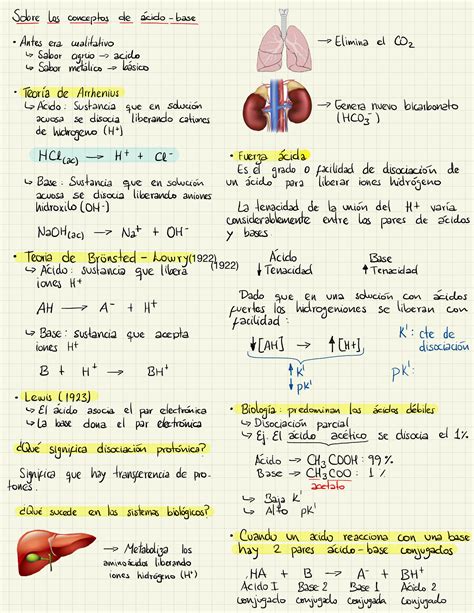 Sobre los conceptos de ácido-base
• Antes era cualitativo
↳ Sabor agrio → acido
↳ Sabor metálico → básico
• Teoría de Arrhenius
↳ Acido: Sustancia que en solución
acuosa se disocia liberando cationes
de hidrogeno (H⁺)
HCl(ac) → H⁺ + Cl⁻
↳ Base: Sustancia que en solución
acuosa se disocia liberando aniones
hidroxilo (OH⁻)
NaOH(ac) → Na⁺ + OH⁻
• Teoria de Brönsted - Lowry(1922)
(1922)
↳ Acido: sustancia que libera
iones H⁺
AH → A⁻ + H⁺
↳ Base: Sustancia que acepta
iones H⁺
B + H⁺ → BH⁺
• Lewis (1923)
↳ El ácido asocia el par electrónica
↳ La base dona el par electrónica
¿Qué significa disociación protónica?
Significa que hay transferencia de pro-
tones.
¿Qué sucede en los sistemas biológicos?
→ Metaboliza los
aminoácidos liberando
iones hidrógeno (H⁺)
→ Elimina el CO₂
→ Genera nuevo bicarbonato
(HCO₃⁻)
• Fuerza ácida
Es el grado o facilidad de disociación de
un ácido para liberar iones hidrógeno
La tenacidad de la unión del H⁺ varía
considerablemente entre los pares de ácidos
y bases.
Ácido Base
↓ Tenacidad ↑ Tenacidad
Dado que en una solución con ácidos
fuertes los hidrogeniones se liberan con
facilidad:
↓[AH] → ↑[H⁺]
K': cte de
disociación
↑ K'
↓ pK'
pK':
• Biología: predominan los ácidos débiles
↳ Disociación parcial
↳ Ej. El ácido acético se disocia el 1%
Ácido → CH₃COOH: 99%
Base → CH₃COO⁻: 1%
acetato
↳ Baja K'
↳ Alto pK'
• Cuando un acido reacciona con una base
hay 2 pares ácido-base conjugados
HA + B → A⁻ + BH⁺
Acido 1 Base 2 Base 1 Ácido 2
conjugado conjugado conjugado conjugado